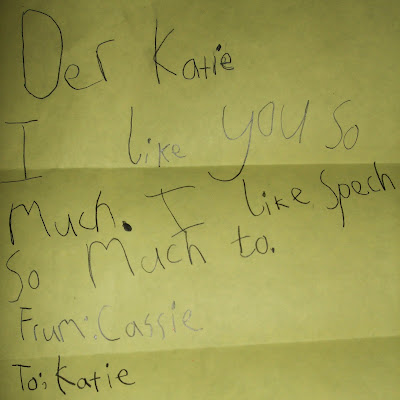 Der Katie
I like you so
Much. I like Spech
So Much to.
Frum: Cassie
To: Katie